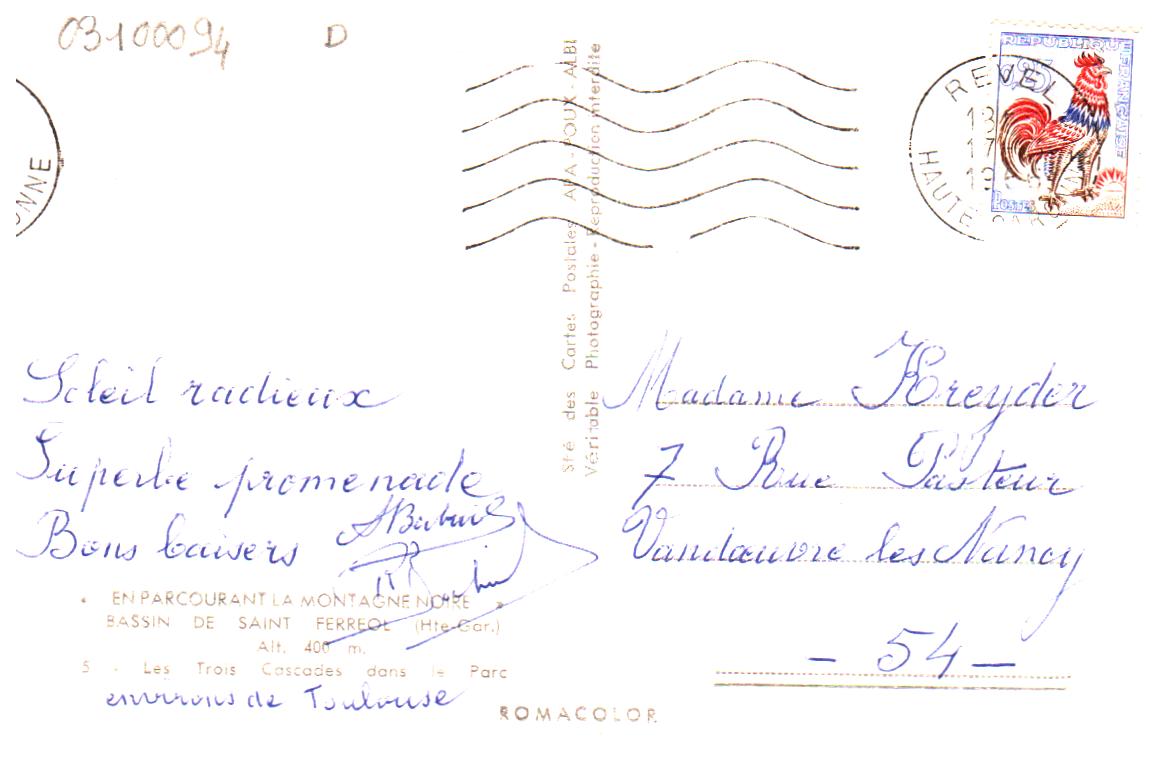 03100094 D
ONNE
REPUBLIQUE FRANÇAISE
0,25
POSTES
REVEL
13
17
19
HAUTE GAR
Sté des Cartes Postales APA-POUX - ALBI
Véritable Photographie - Reproduction interdite
Soleil radieux
Superbe promenade
Bons baisers
« EN PARCOURANT LA MONTAGNE NOIRE »
BASSIN DE SAINT FERREOL (Hte-Gar.)
Alt. 400 m.
5 - Les Trois Cascades dans le Parc
environs de Toulouse
ROMACOLOR
Madame Kreyder
7 Rue Pasteur
Vandœuvre les Nancy
- 54 -